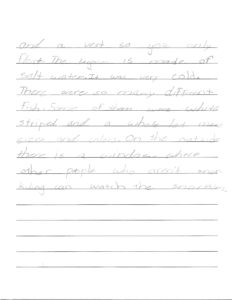 and a vest so you only
float. The is made of
salt water. It was very cold.
There were so many different
fish. Some of them were white
striped and a whole lot more
sizes and colors. On the outside
there is a window where
other people who aren't
can watch the